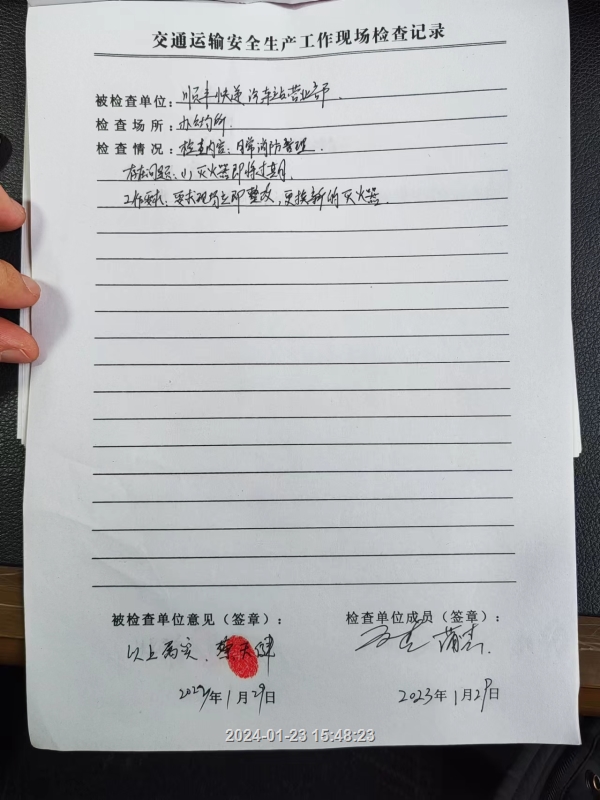 交通运输安全生产工作现场检查记录
被检查单位：顺丰快递汽车站营业部.
检查场所：办公场所.
检查情况：检查内容：日常消防管理.
存在问题：(1)灭火器即将过期.
工作要求：要求现场立即整改，更换新的灭火器.
被检查单位意见（签章）： 检查单位成员（签章）：
以上属实.
年1月29日 2023年1月29日
2024-01-23 15:48:23